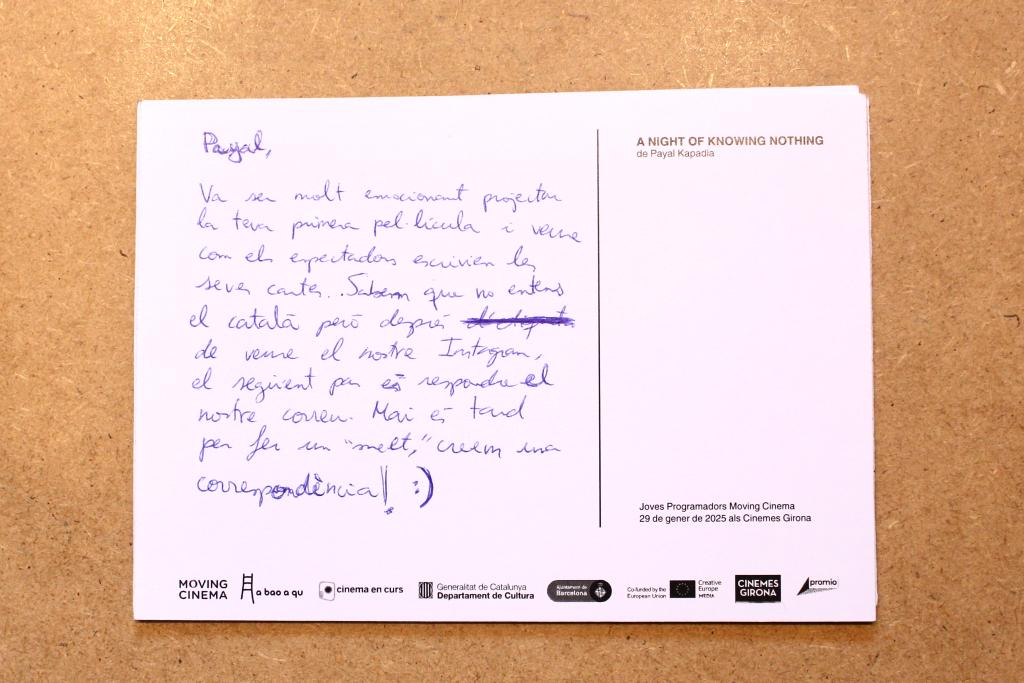 Payal,
Va ser molt emocionant projectar
la teva primera pel·lícula i veure
com els espectadors escrivien les
seves cartes. Sabem que no entens
el català però després
de veure el nostre Instagram,
el següent pas és respondre el
nostre correu. Mai és tard
per fer un "melt," creem una
correspondència! :)
A NIGHT OF KNOWING NOTHING
de Payal Kapadia
Joves Programadors Moving Cinema
29 de gener de 2025 als Cinemes Girona
MOVING
CINEMA
a bao a qu
cinema en curs
Generalitat de Catalunya
Departament de Cultura
Ajuntament de
Barcelona
Co-funded by the
European Union
Creative
Europe
MEDIA
CINEMES
GIRONA
promio